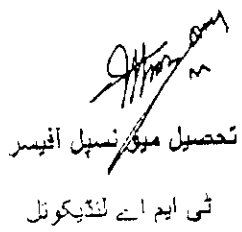 تحصیل میونسپل آفیسر
ٹی ایم اے لنڈیکوتل